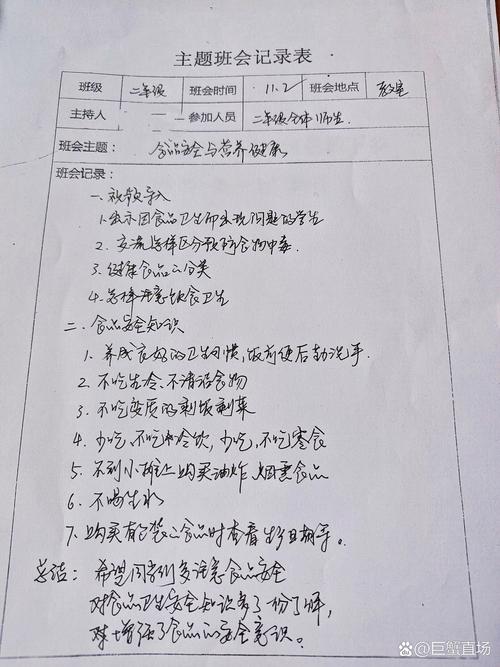 主题班会记录表
班级 二年级 班会时间 11.2 班会地点 教室
主持人 参加人员 二年级全体师生
班会主题: 食品安全与营养健康
班会记录:
一. 视频导入
1. 出示因食品卫生而出现问题的学生
2. 交流怎样区分预防食物中毒.
3. 健康食品的分类
4. 怎样注意饮食卫生
二. 食品安全知识
1. 养成良好的卫生习惯,饭前便后勤洗手.
2. 不吃生冷、不清洁食物
3. 不吃变质的剩饭剩菜
4. 少吃、不吃冷饮,少吃、不吃零食
5. 不到小摊上购买油炸、烟熏食品
6. 不喝生水
7. 购买有包装的食品时查看生产日期等。
总结: 希望同学们多注意食品安全
对食品卫生安全知识多了一份了解,
增强了食品的安全意识。
百家号@巨蟹直场